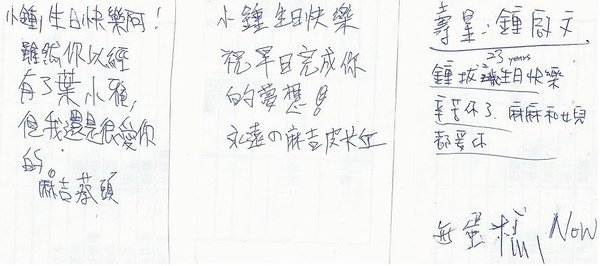 小鍾!生日快樂阿!
雖然你以經
有了葉小雅,
但我還是很愛你
的。
麻吉蔡頭
小鍾生日快樂
祝早日完成你
的夢想!
永遠の麻吉皮
壽星:鍾啟文
23 years
鍾拔 生日快樂
辛苦你了. 麻麻和女兒
都愛你
Now